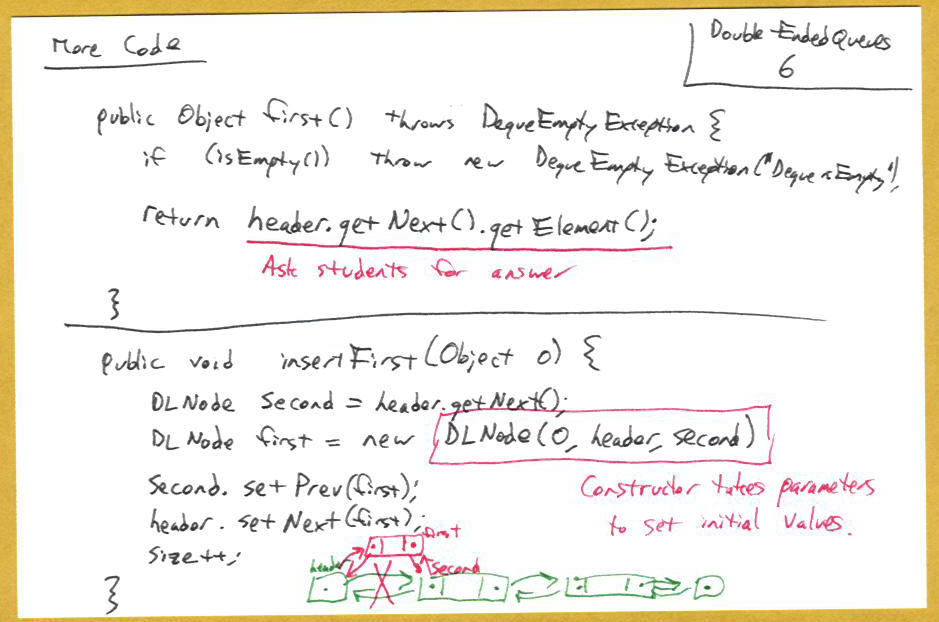 More Code
Double-Ended Queues
6
public Object first() throws DequeEmptyException {
if (isEmpty()) throw new DequeEmptyException("Deque is Empty");
return header.getNext().getElement();
Ask students for answer
}
public void insertFirst(Object o) {
DLNode second = header.getNext();
DLNode first = new DLNode(o, header, second)
second.setPrev(first);
Constructor takes parameters
header.setNext(first);
to set initial values.
size++;
first
header
second
}